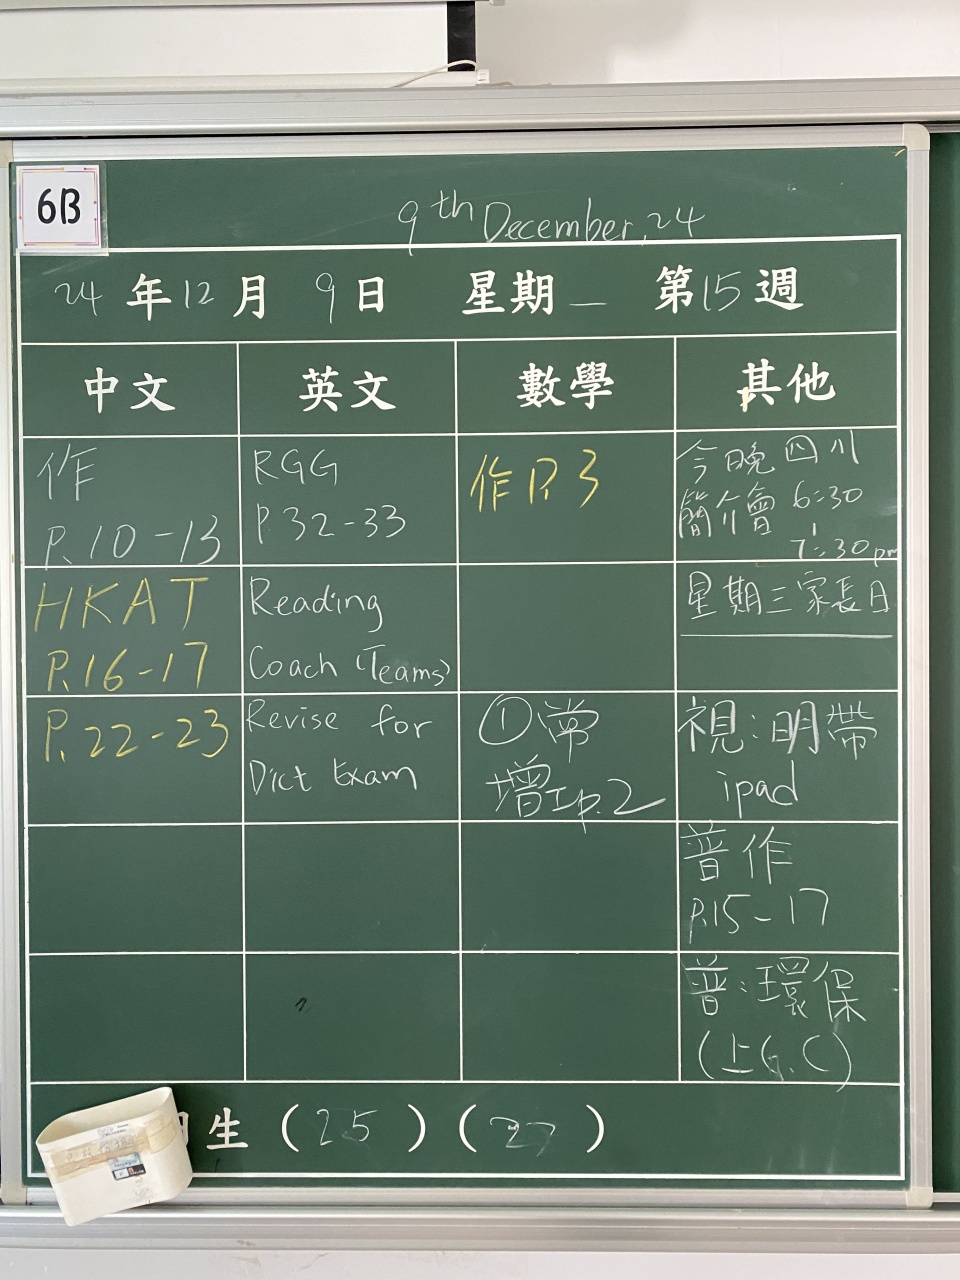 6B
9th December, 24
24年12月9日 星期一 第15週
中文 英文 數學 其他
作
P.10-13
RGG
P.32-33
作P.3
今晚四川
簡介會 6:30
7:30pm
HKAT
P.16-17
Reading
Coach (Teams)
星期三家長日
P.22-23
Revise for
Dict Exam
①常
增工p.2
視:明帶
ipad
普作
P.15-17
普:環保
(上G.C)
生(25)(27)